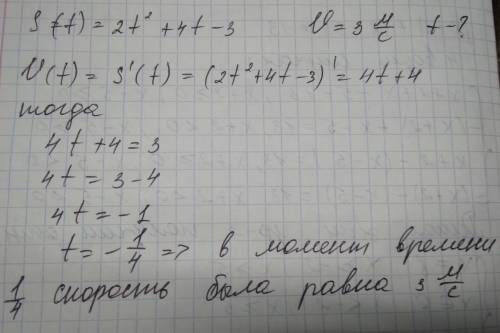 S(t) = 2t² + 4t - 3 V = 3 м/с t - ?
V(t) = S'(t) = (2t² + 4t - 3)' = 4t + 4
тогда
4t + 4 = 3
4t = 3 - 4
4t = -1
t = -1/4 => в момент времени
1/4 скорость была равна 3 м/с